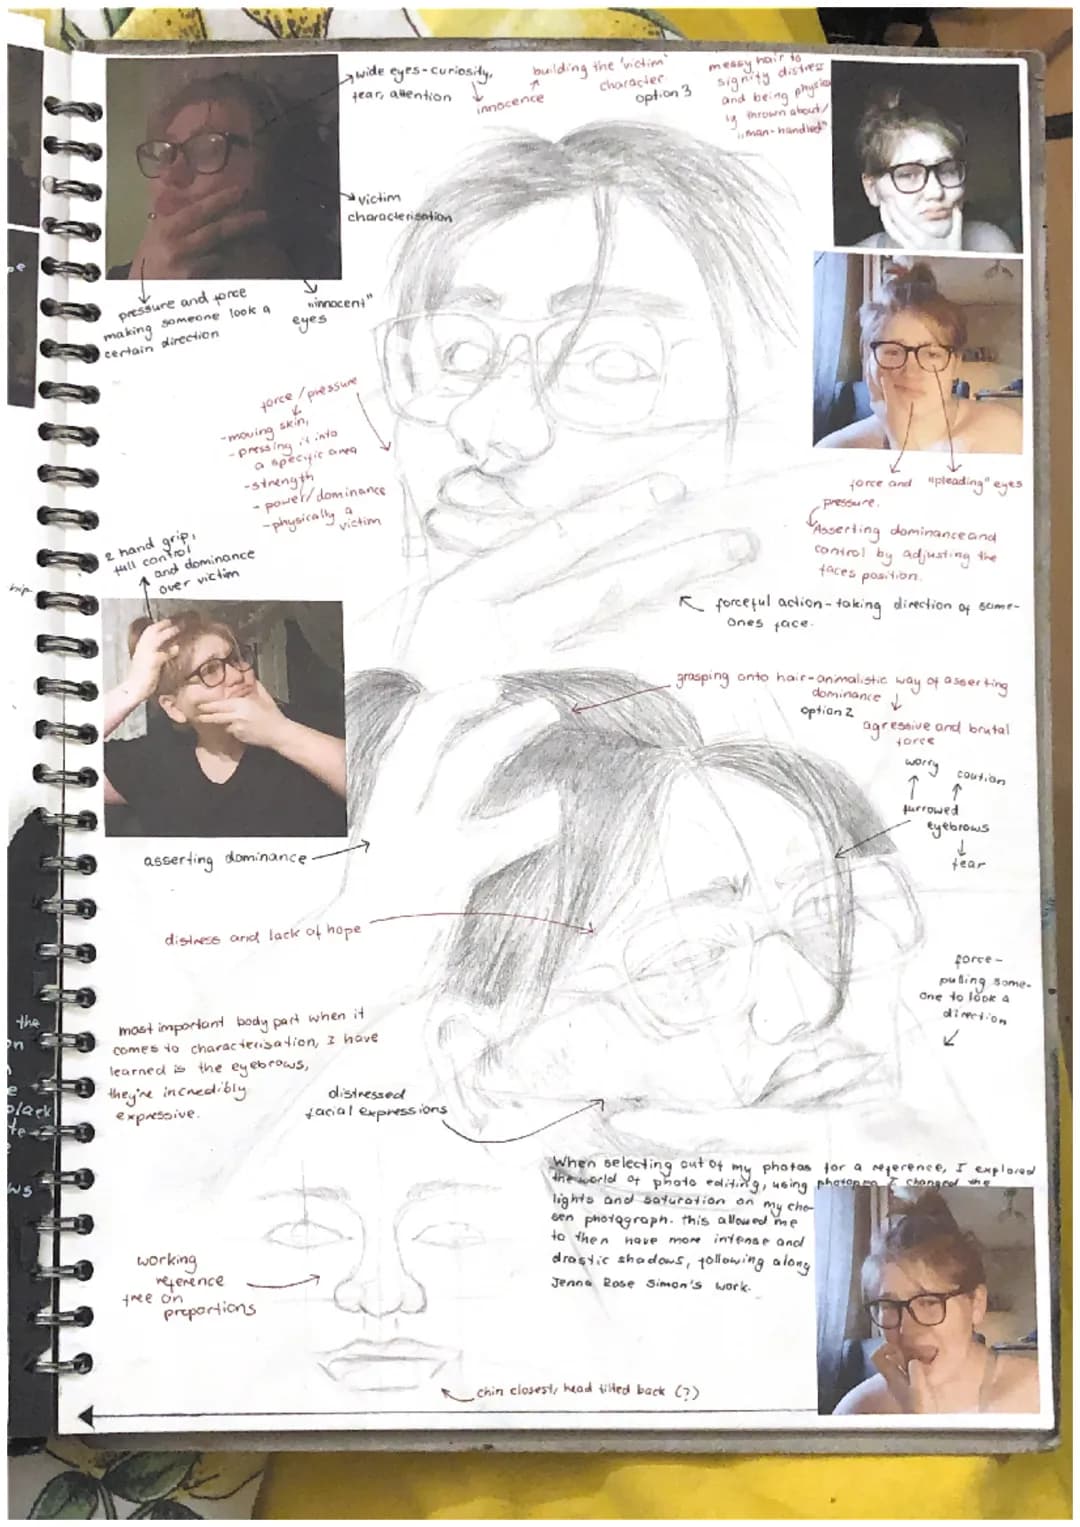 wide eyes-curiosity,
fear, attention
innocence
building the 'victim'
character
option 3
messy hair to
signify distress
and being physical
ly thrown about/
"man-handled"
victim
characterisation
"innocent"
eyes
pressure and force
making someone look a
certain direction
force/pressure
-moving skin,
-pressing it into
a specific area
-strength
-power/dominance
-physically a
victim
force and
pressure.
"pleading" eyes
Asserting dominance and
control by adjusting the
faces position.
forceful action-taking direction of some-
ones face.
2 hand grip,
full control
and dominance
over victim
hip
grasping onto hair-animalistic way of asserting
dominance
option 2
agressive and brutal
force
worry
caution
furrowed
eyebrows
fear
asserting dominance
distress and lack of hope
force-
pulling some-
one to look a
direction
most important body part when it
comes to characterisation, I have
learned is the eyebrows,
they're incredibly
expressive.
distressed
facial expressions
When selecting out of my photos for a reference, I explored
the world of photo editing, using photopea I changed the
lights and saturation on my cho-
sen photograph. this allowed me
to then have more intense and
drastic shadows, following along
Jenna Rose Simon's work.
working
reference
free on
proportions
chin closest, head tilted back (?)
the
black
ws